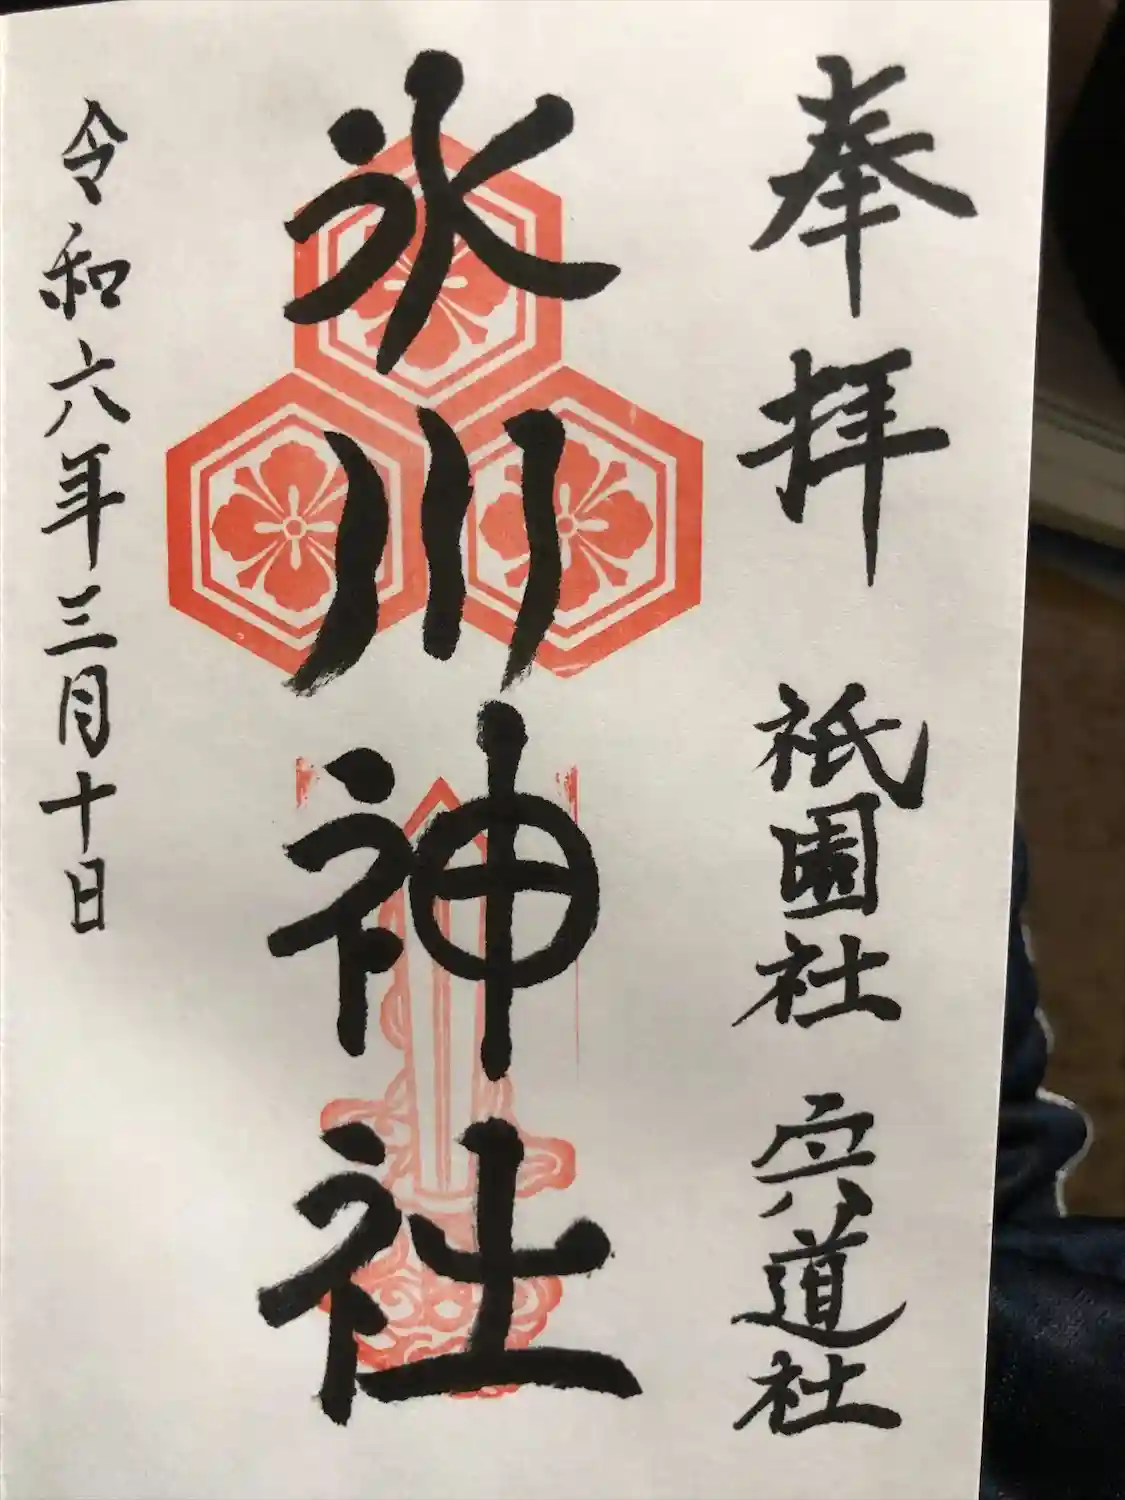 奉拝 祇園社 宍道社
氷川神社
令和六年三月十日